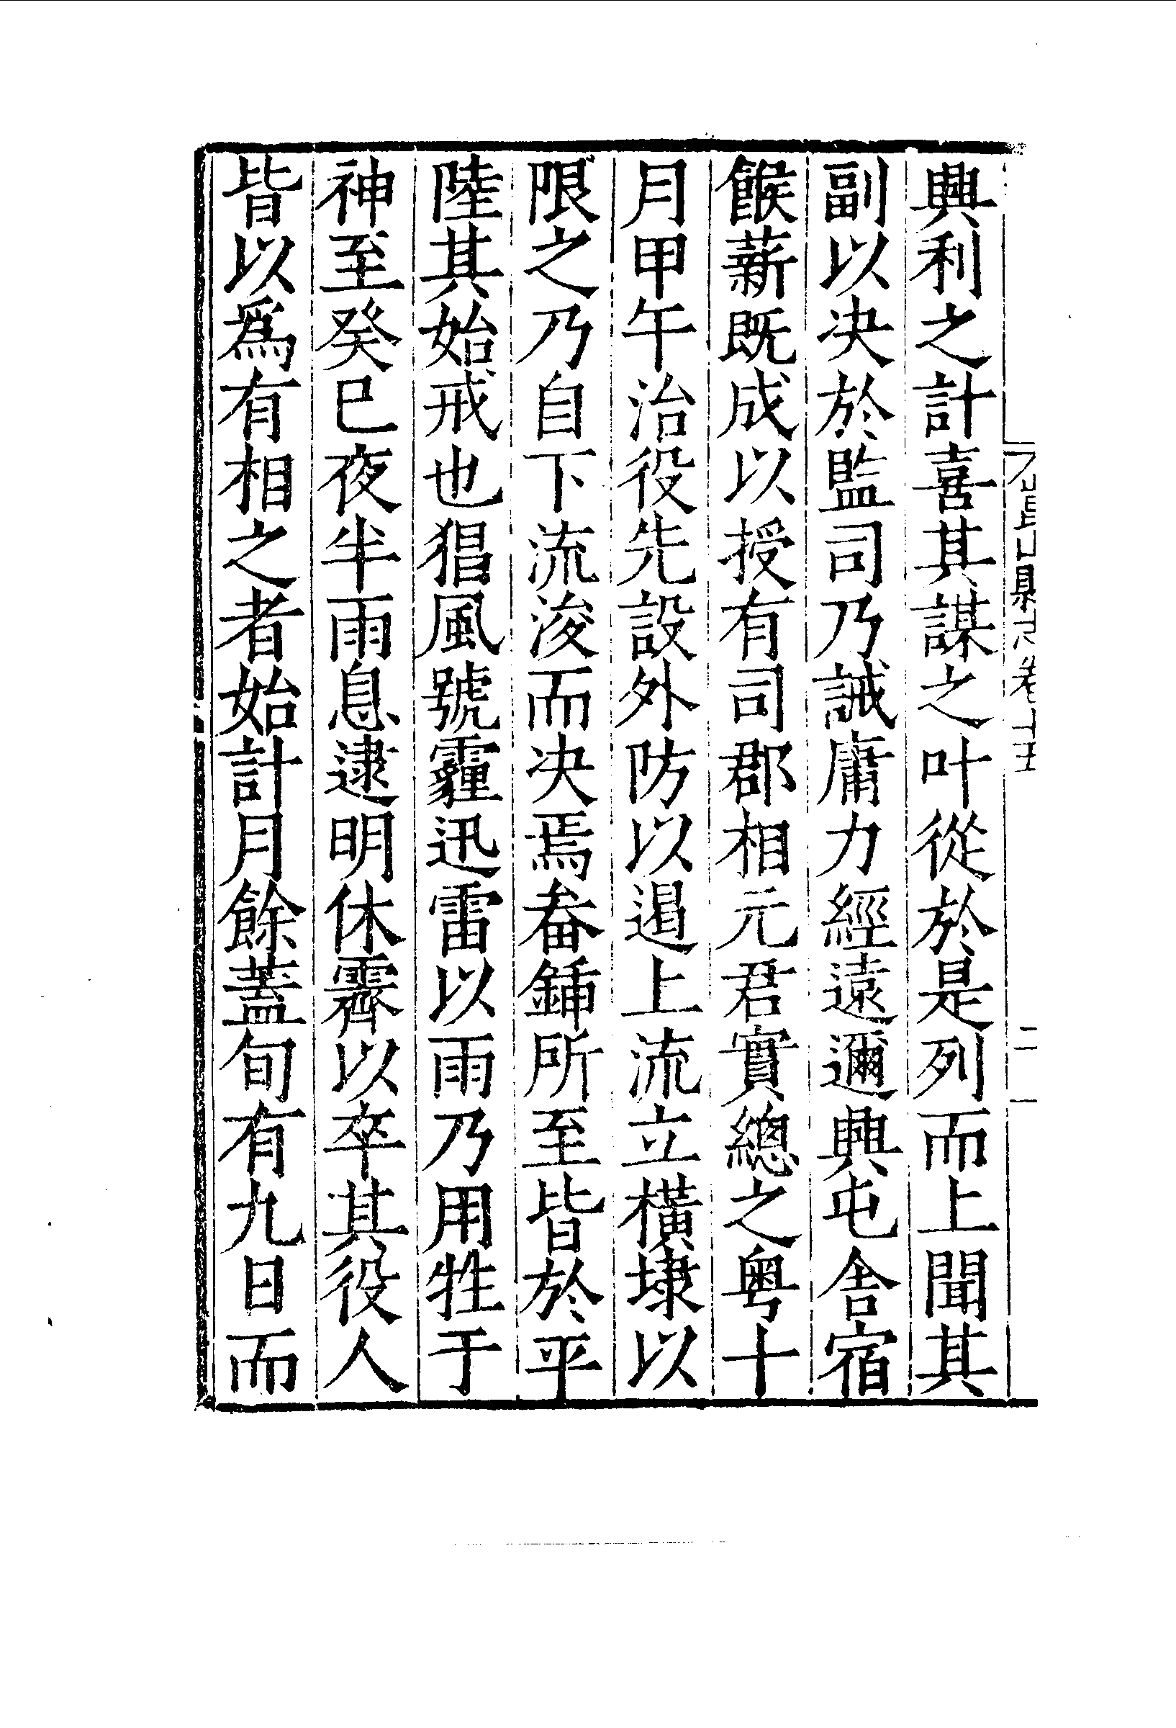 興利之計喜其謀之叶從於是列而上聞其
副以决於監司乃誡庸力經遠邇興屯舍宿
餱薪既成以授有司郡相元君實總之粤十
月甲午治役先設外防以遏上流立橫埭以
限之乃自下流浚而决焉畚鍤所至皆於平
陸其始戒也猖風號霾迅雷以雨乃用牲于
神至癸巳夜半雨息逮明休霽以卒其役人
皆以爲有相之者始計月餘蓋旬有九日而
縣志卷十五